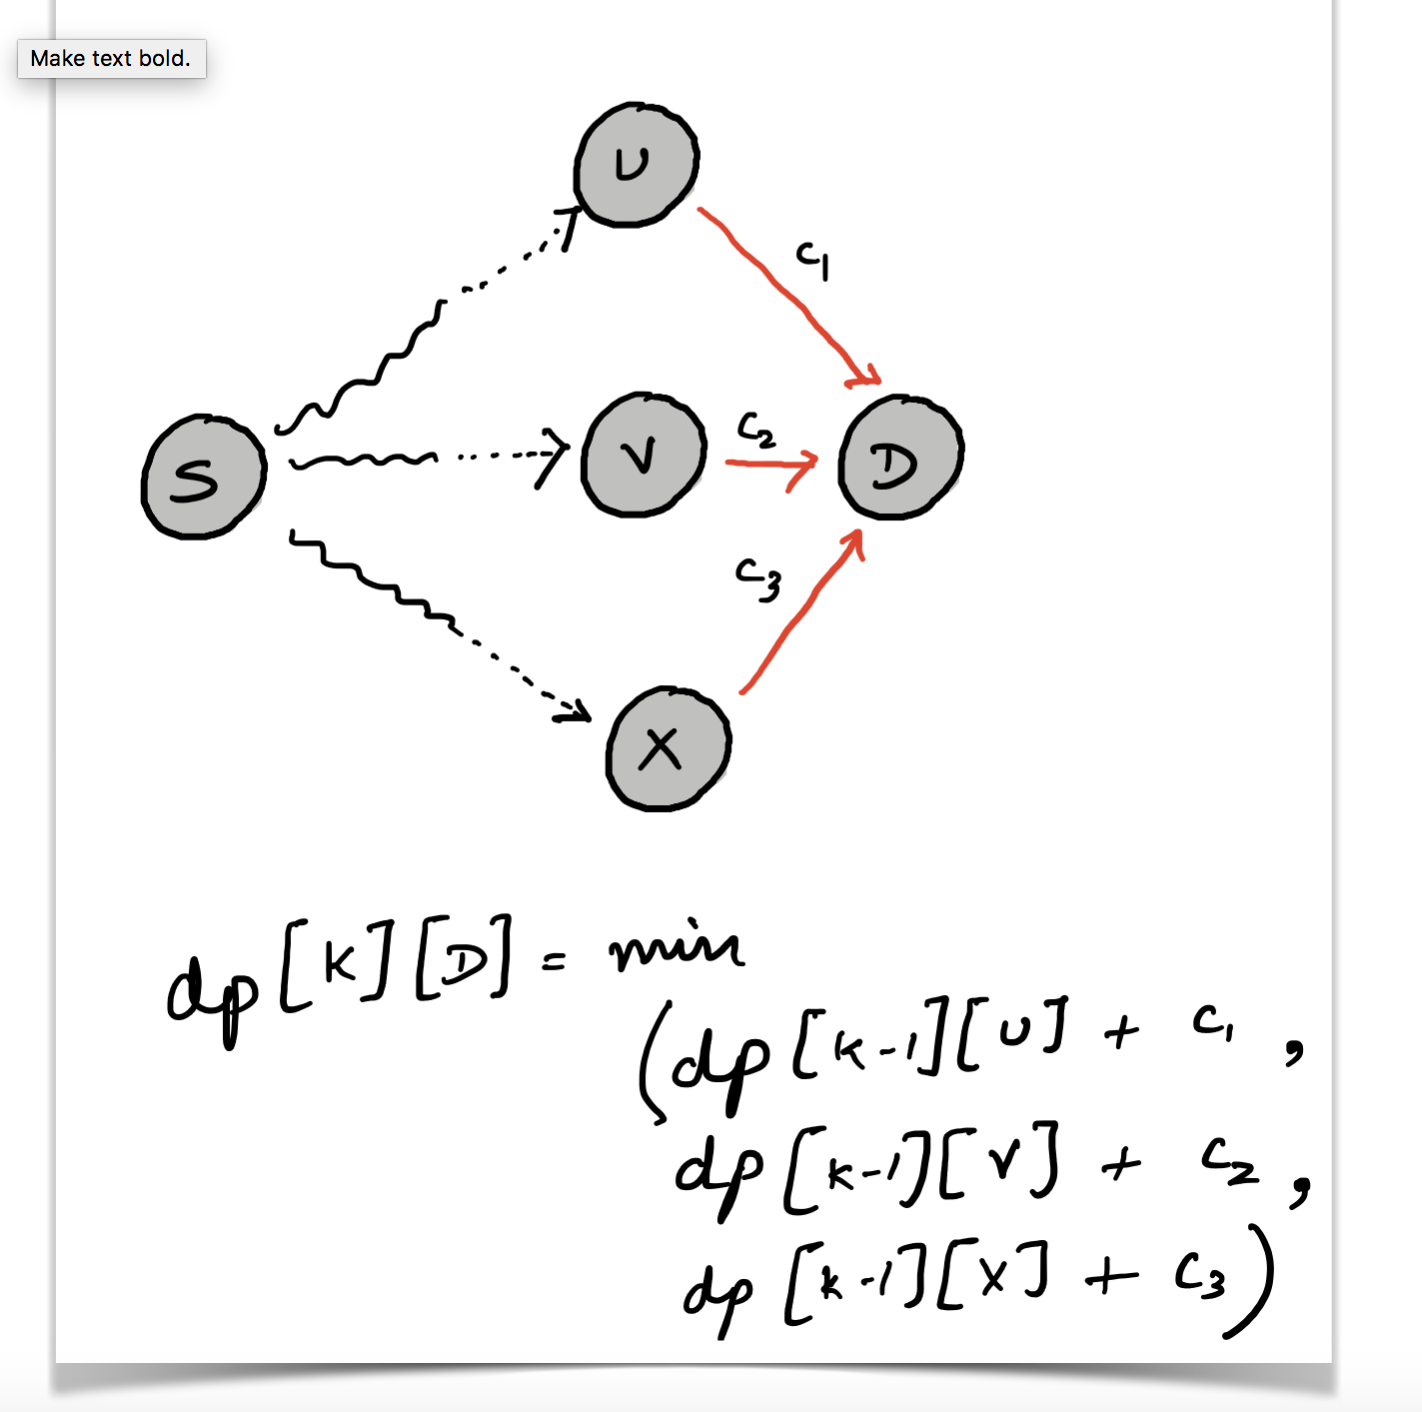 Make text bold.
U
C1
S
V
C2
D
C3
X
dp[K][D] = min
(dp[K-1][U] + C1,
dp[K-1][V] + C2,
dp[K-1][X] + C3)